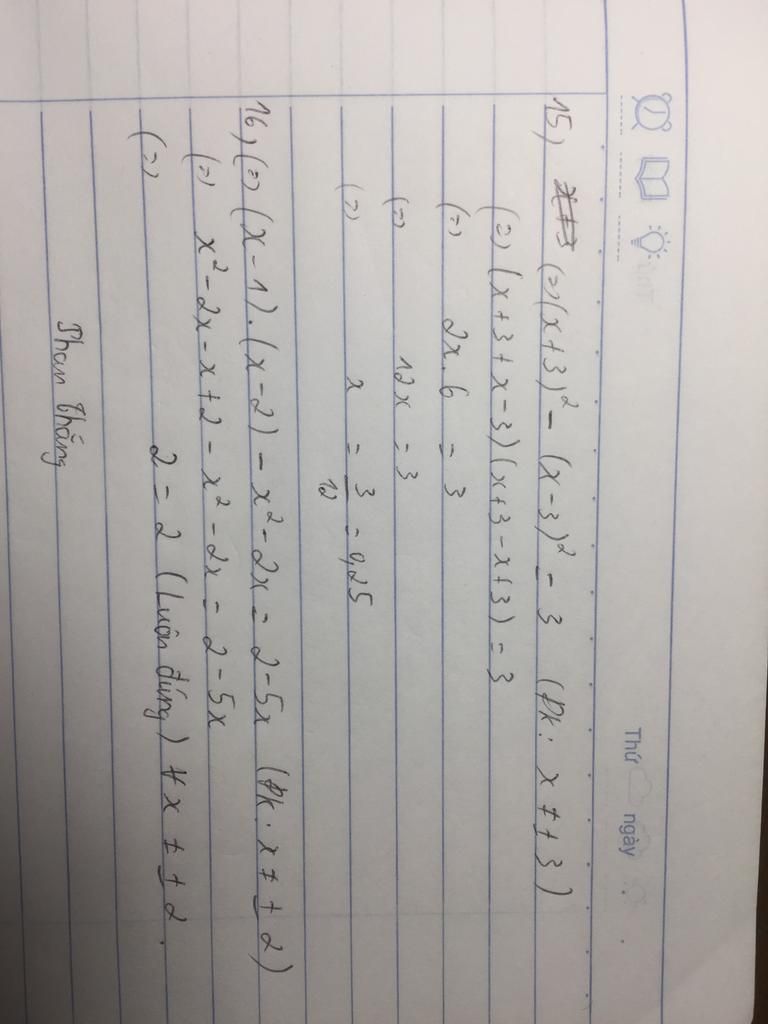 Thứ ngày
15, (=) (x+3)² - (x-3)² = 3 (Đk: x ≠ ± 3)
(=) (x+3+x-3)(x+3-x+3) = 3
(=) 2x.6 = 3
(=) 12x = 3
(=) x = 3/12 = 0,25
16, (=) (x-1).(x-2) - x² - 2x = 2 - 5x (Đk: x ≠ ± 2)
(=) x² - 2x - x + 2 - x² - 2x = 2 - 5x
(=) 2 = 2 (Luôn đúng) ∀ x ≠ ± 2.
Phan Thắng